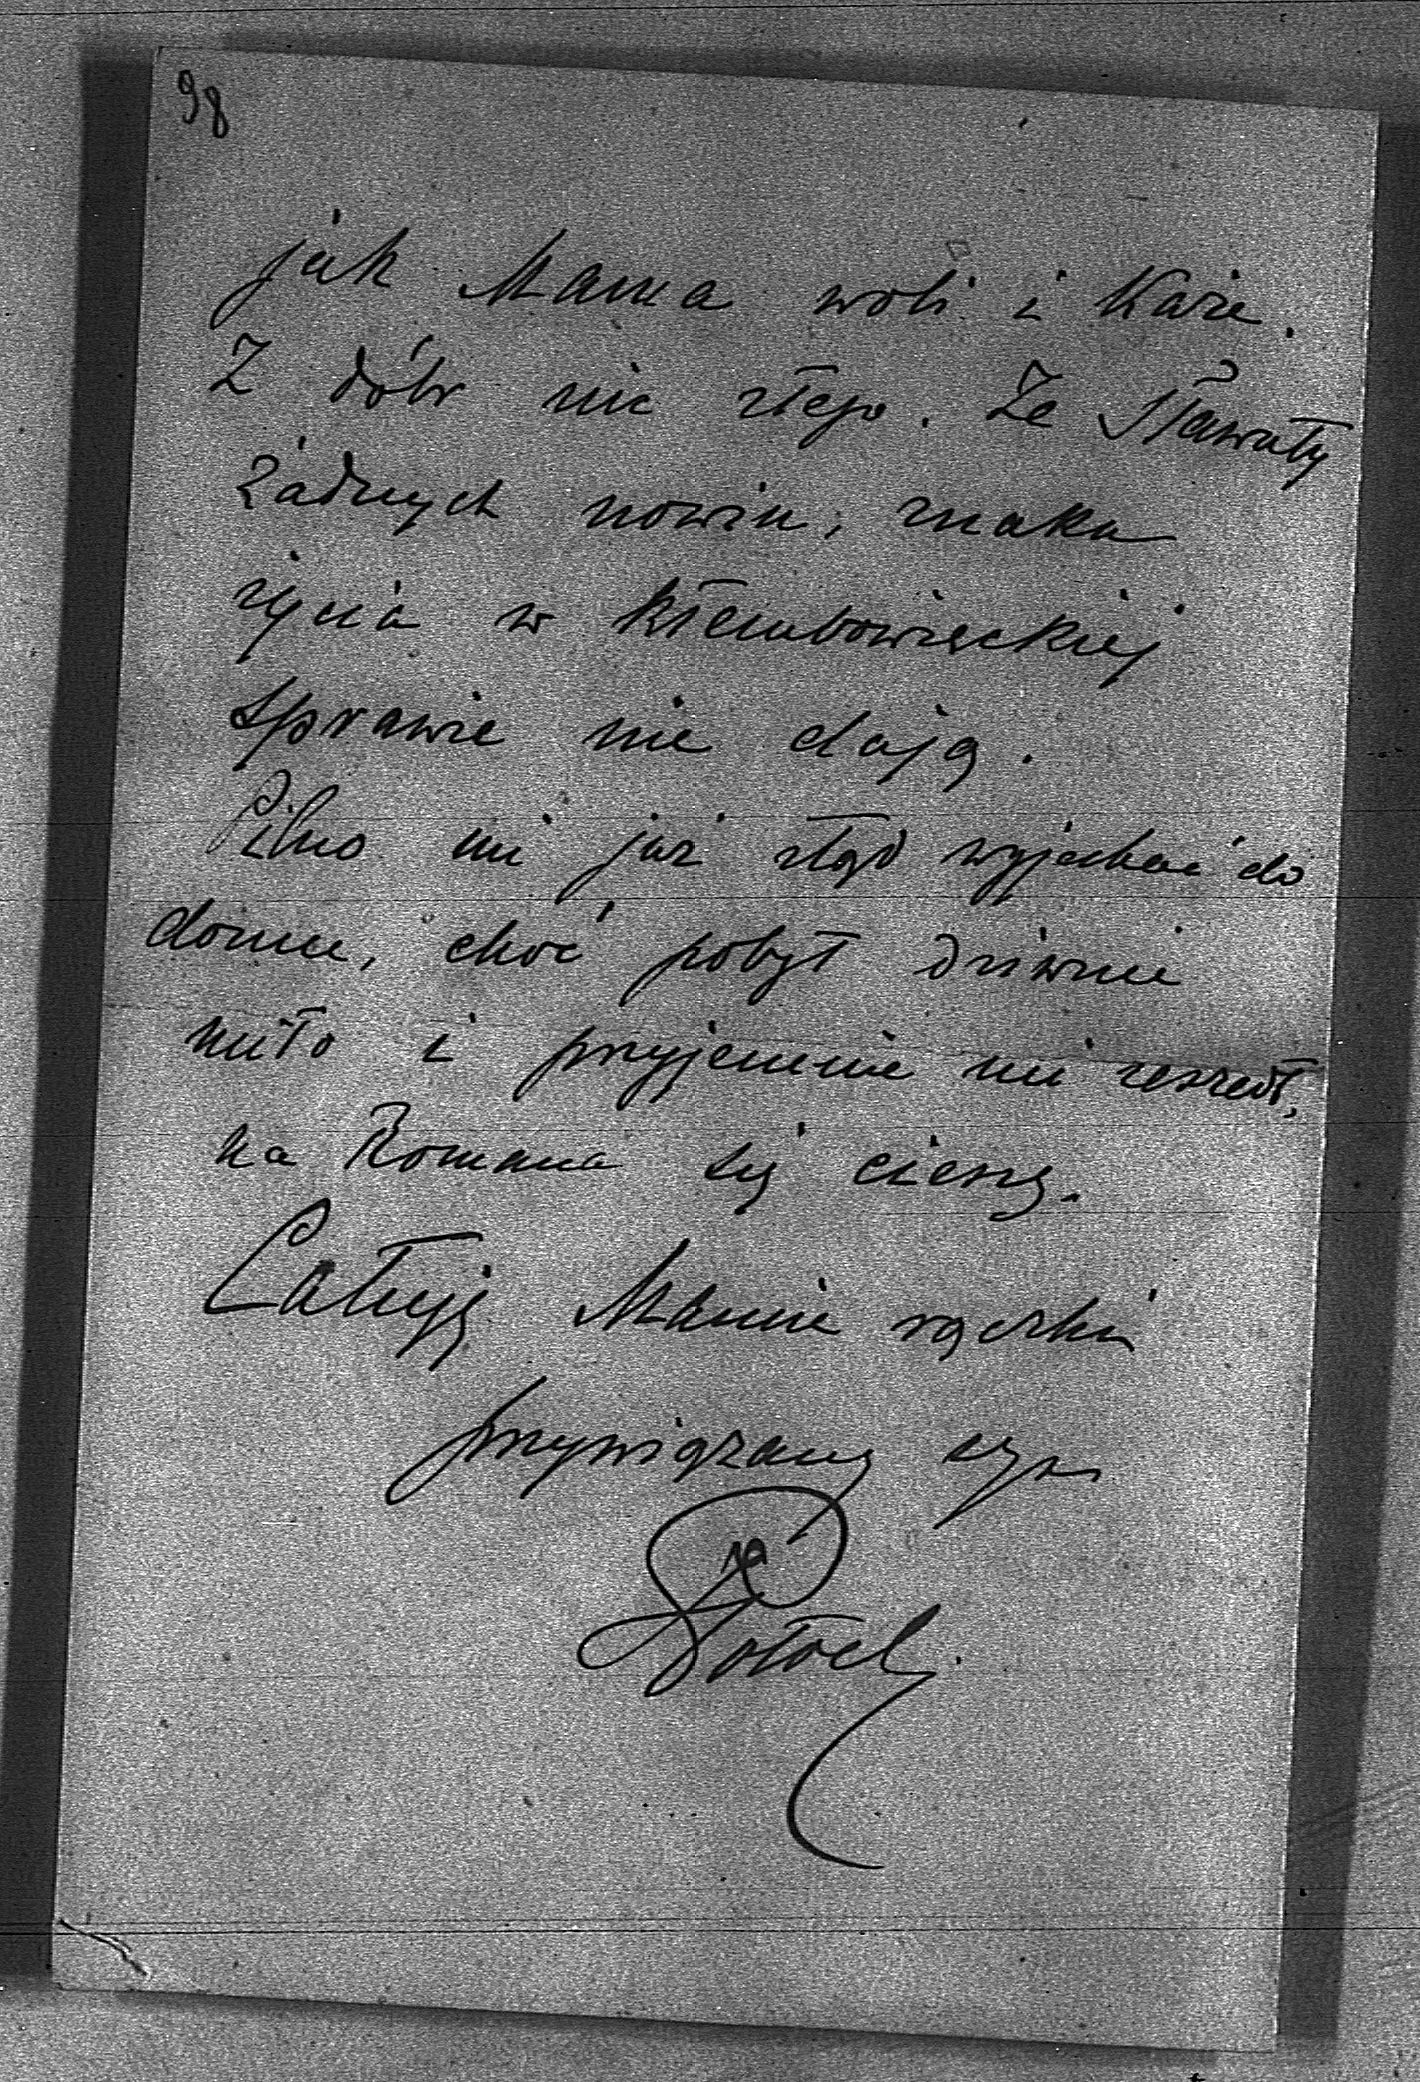 98
jak Mama woli i każe.
Z dóbr nic złego. Ze Sławuty
żadnych nowin, znaku
życia w kłembowieckiej
sprawie nie dają.
Pilno mi już stąd wyjechać do
domu, choć pobyt dziwnie
miło i przyjemnie mi zeszedł,
na Romana się cieszę.
Całuję Mamie rączki
przywiązany syn
Potocki